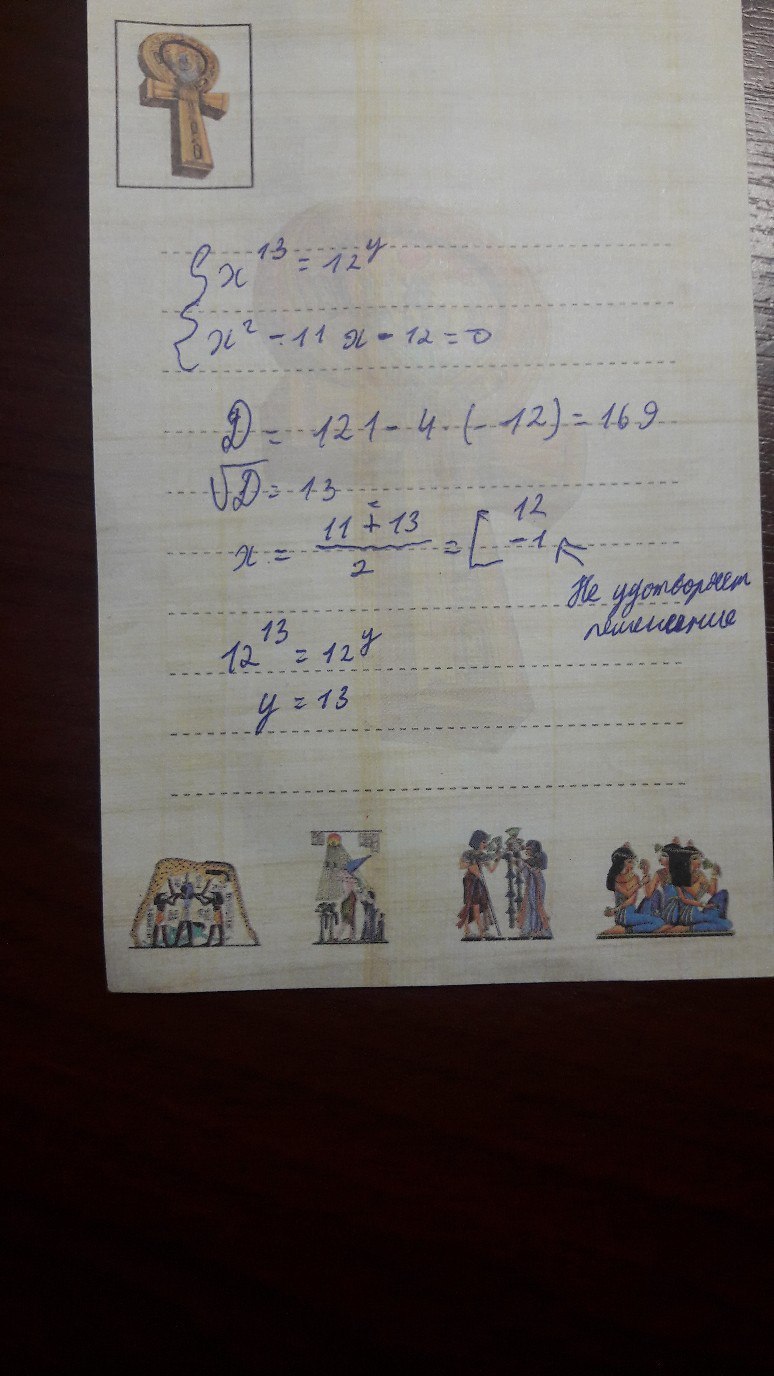 x^13 = 12^y
x² - 11 x - 12 = 0
D = 121 - 4 · (-12) = 169
√D = 13
x = (11 ± 13) / 2 = [ 12
-1
Не удотворяет
12^13 = 12^y
y = 13